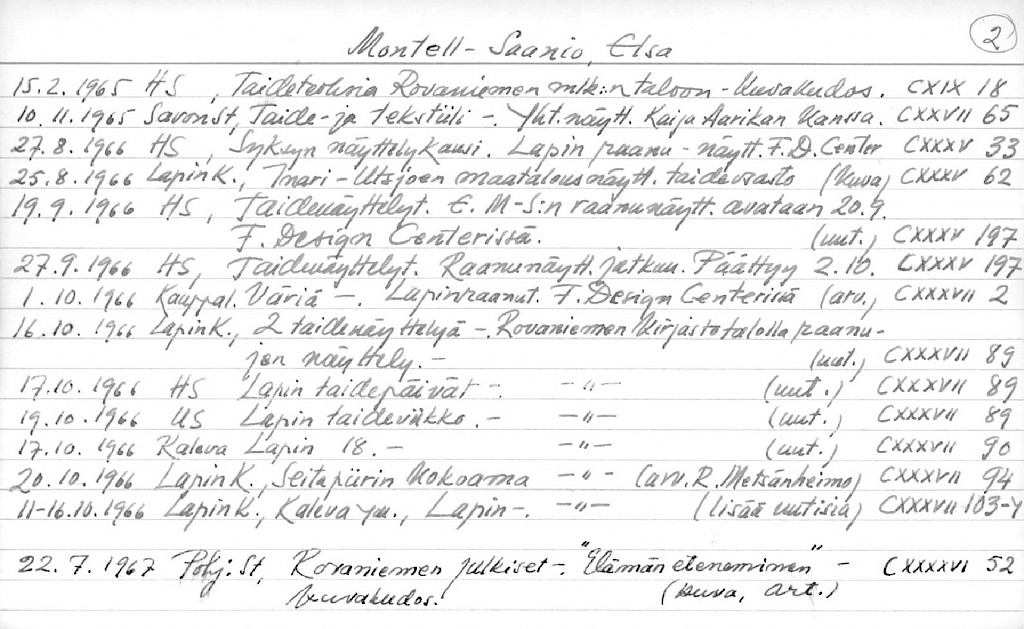 2
Montell-Saanio, Elsa
15.2.1965 HS, Taideteoksia Rovaniemen mlk:n taloon - Kuvakudos. CXIX 18
10.11.1965 Savon St, Taide- ja tekstiili -. Yht.näytt. Kaija Aarikan kanssa. CXXVII 65
27.8.1966 HS, Syksyn näyttelykausi. Lapin raanu-näytt. F.D.Center CXXXV 33
25.8.1966 Lapin K., Inari-Utsjoen maatalousnäytt. taideosasto (kuva) CXXXV 62
19.9.1966 HS, Taidenäyttelyt. E. M-S:n raanunäytt. avataan 20.9.
F. Design Centerissä. (uut.) CXXXV 197
27.9.1966 HS, Taidenäyttelyt. Raanunäytt. jatkuu. Päättyy 2.10. CXXXV 197
1.10.1966 Kauppal. Väriä -. Lapinraanut. F. Design Centerissä (arv.) CXXXVII 2
16.10.1966 Lapin K., 2 taidenäyttelyä -. Rovaniemen kirjastotalolla raanu-
jen näyttely. - (uut.) CXXXVII 89
17.10.1966 HS Lapin taidepäivät - -"- (uut.) CXXXVII 89
19.10.1966 US Lapin taideviikko. - -"- (uut.) CXXXVII 89
17.10.1966 Kaleva Lapin 18. - -"- (uut.) CXXXVII 90
20.10.1966 Lapin K., Seitapiirin kokoama -"- (arv. R. Metsänheimo) CXXXVII 94
11-16.10.1966 Lapin K., Kaleva ym., Lapin -. -"- (lisää uutisia) CXXXVII 103-4
22.7.1967 Pohj.St, Rovaniemen julkiset -. "Elämän eteneminen" - CXXXXVI 52
kuvakudos. (kuva, art.)